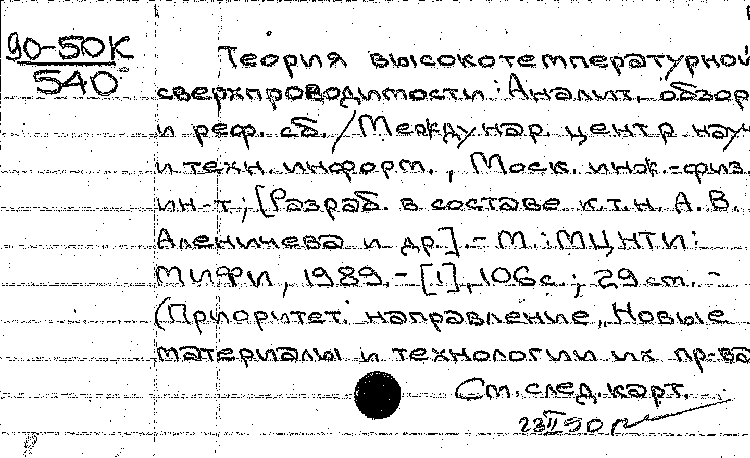 90-50К
540
Теория высокотемпературной
сверхпроводимости: Аналит. обзор
и реф. сб. / Междунар. центр науч
и техн. информ., Моск. инж.-физ.
ин-т; [Разраб. в составе к.т.н. А. В.
Аленичева и др.]. - М.: МЦНТИ:
МИФИ, 1989. - [1], 106 с.; 29 см. -
(Приоритет. направление „Новые
материалы и технологии их пр-ва
См. след. карт.
23 II 90